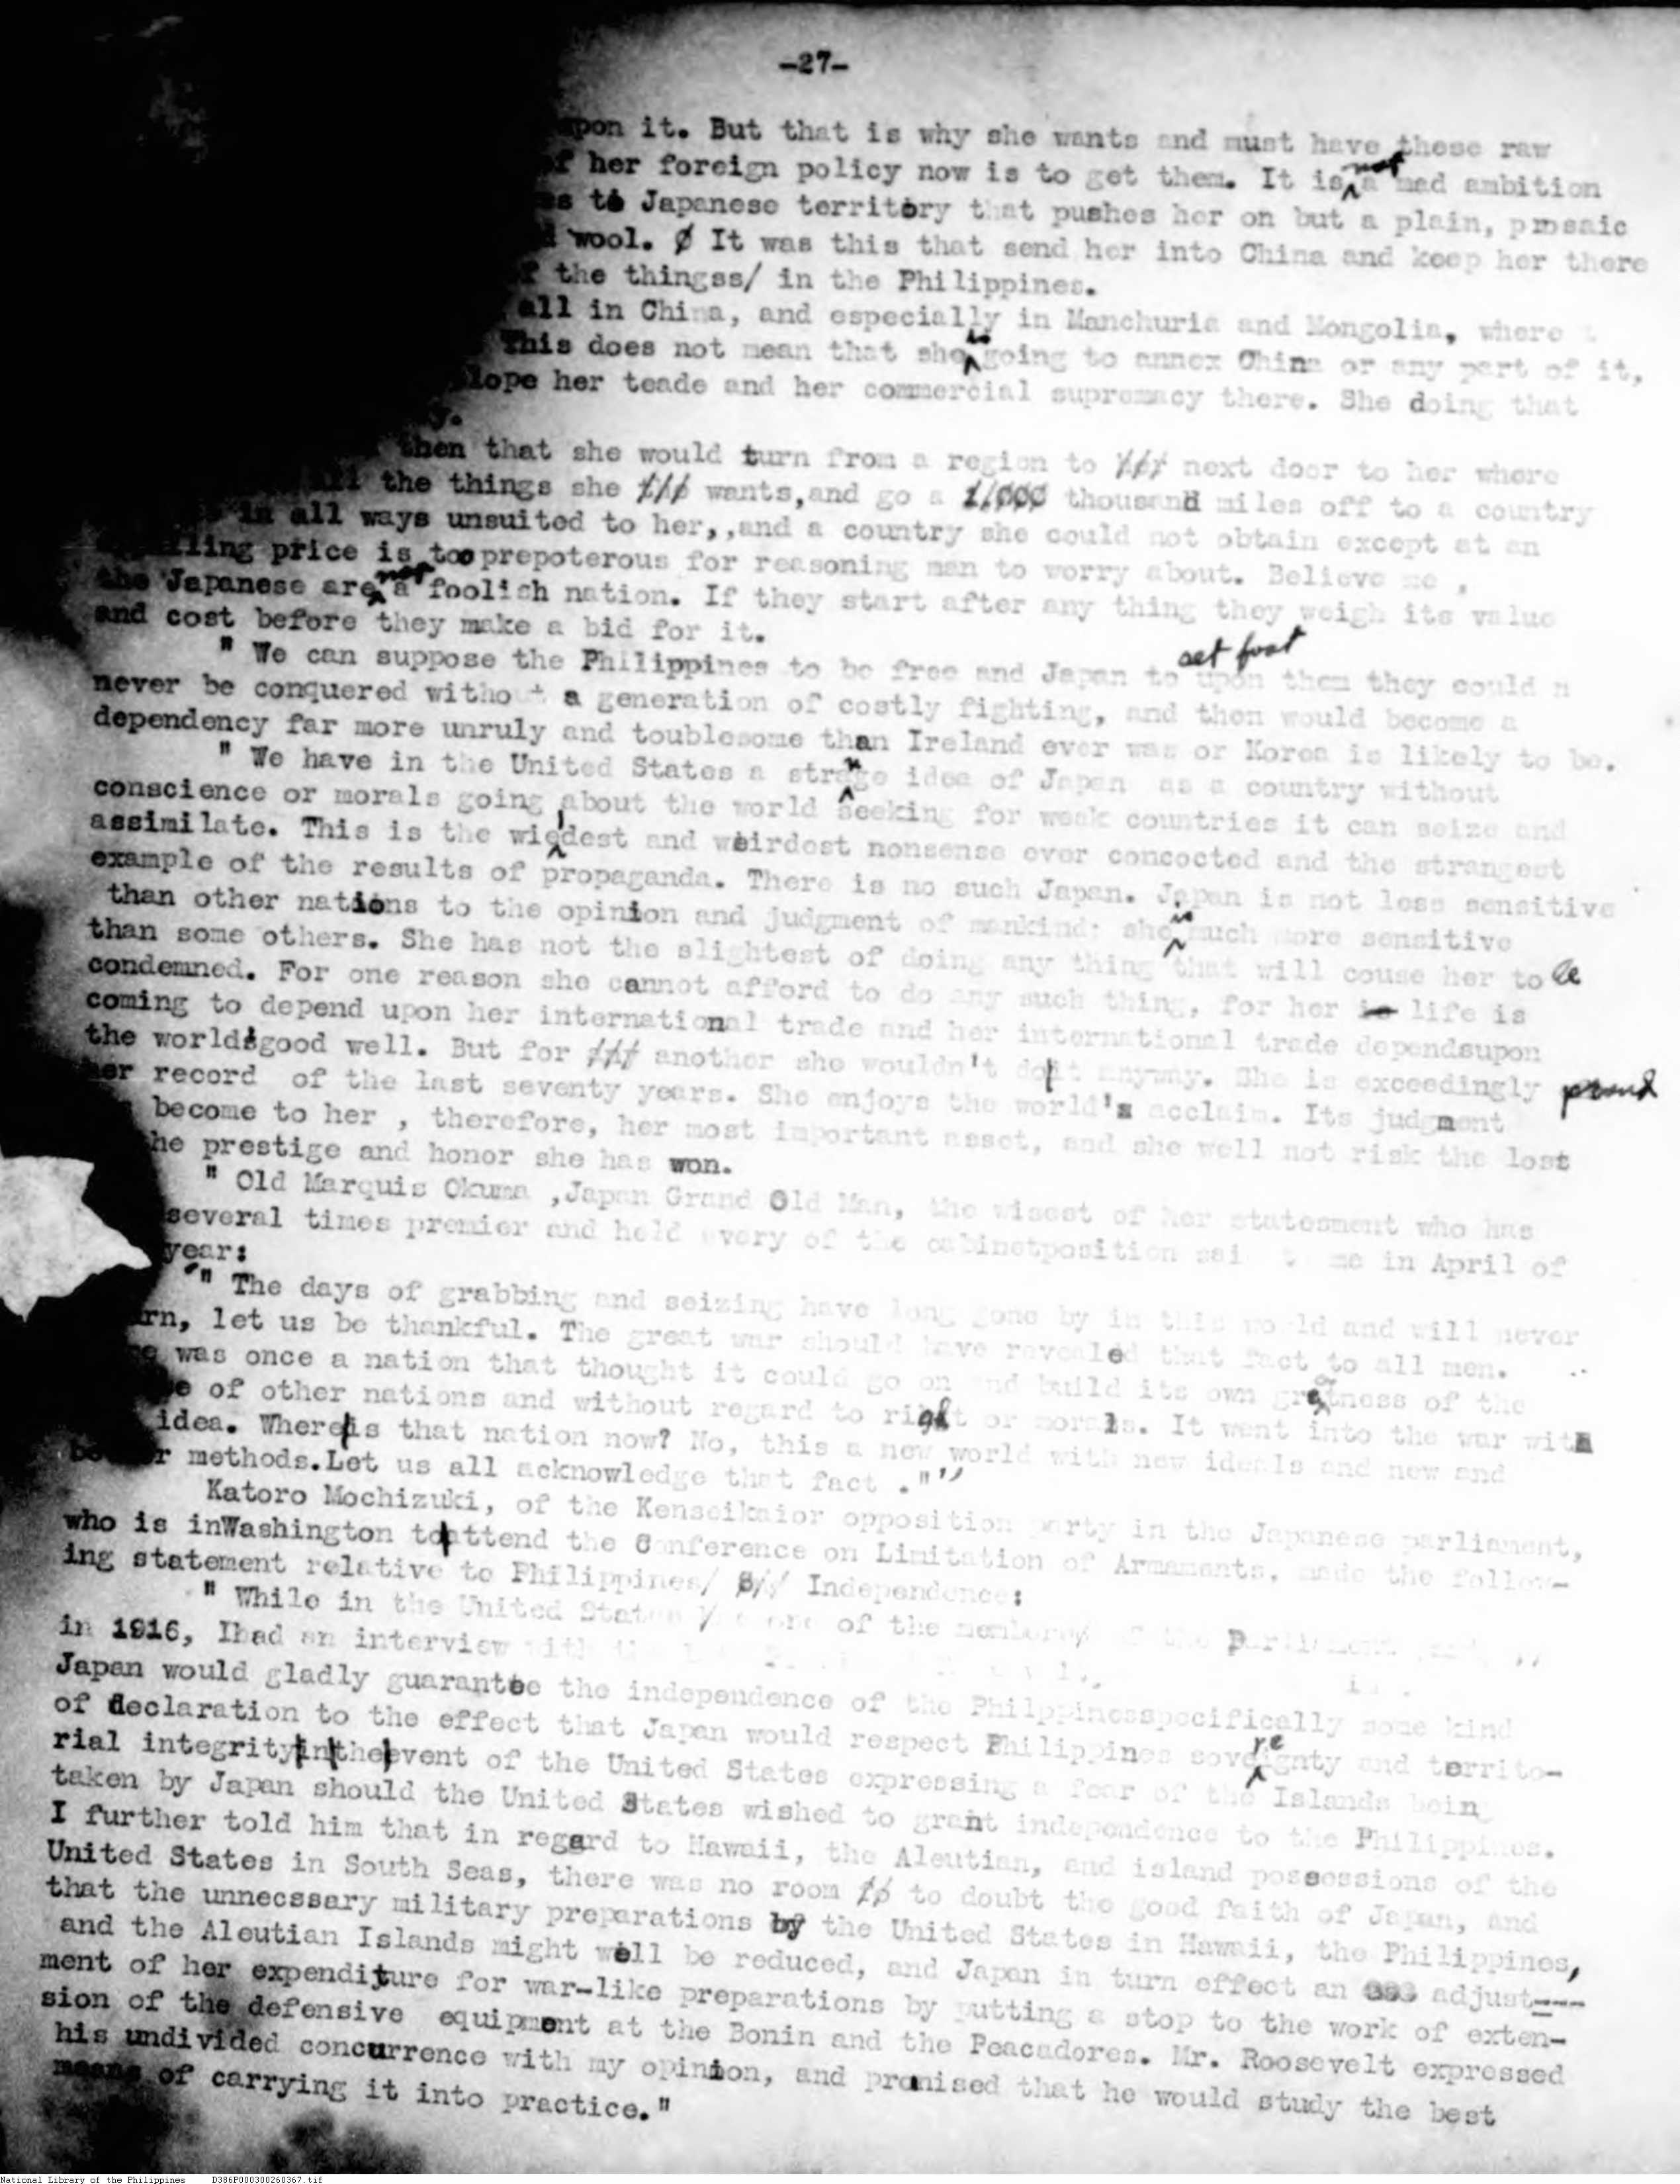 -27-
upon it. But that is why she wants and must have these raw
of her foreign policy now is to get them. It is not a mad ambition
es to Japanese territory that pushes her on but a plain, prosaic
d wool. It was this that send her into China and keep her there
f the thingss/ in the Philippines.
all in China, and especially in Manchuria and Mongolia, where
This does not mean that she is going to annex China or any part of it,
lope her teade and her commercial supremacy there. She doing that
y.
then that she would turn from a region to next door to her where
all the things she wants,and go a thousand miles off to a country
in all ways unsuited to her,,and a country she could not obtain except at an
lling price is too prepoterous for reasoning man to worry about. Believe me ,
the Japanese are not a foolish nation. If they start after any thing they weigh its value
and cost before they make a bid for it.
" We can suppose the Philippines to be free and Japan to set foot upon them they could n
never be conquered without a generation of costly fighting, and then would become a
dependency far more unruly and toublesome than Ireland ever was or Korea is likely to be.
" We have in the United States a strange idea of Japan as a country without
conscience or morals going about the world seeking for weak countries it can seize and
assimilate. This is the wildest and weirdest nonsense ever concocted and the strangest
example of the results of propaganda. There is no such Japan. Japan is not less sensitive
than other nations to the opinion and judgment of mankind; she is much more sensitive
than some others. She has not the slightest of doing any thing that will couse her to be
condemned. For one reason she cannot afford to do any such thing, for her life is
coming to depend upon her international trade and her international trade dependsupon
the world's good well. But for another she wouldn't do it anyway. She is exceedingly proud
her record of the last seventy years. She enjoys the world's acclaim. Its judgment
become to her , therefore, her most important asset, and she well not risk the lost
he prestige and honor she has won.
" Old Marquis Okuma ,Japan Grand Old Man, the wisest of her statesment who has
several times premier and held every of the cabinetposition sai t me in April of
year:
'" The days of grabbing and seizing have long gone by in this wo ld and will never
rn, let us be thankful. The great war should have revealed that fact to all men.
e was once a nation that thought it could go on and build its own greatness of the
e of other nations and without regard to right or morals. It went into the war with
idea. Where is that nation now? No, this a new world with new ideals and new and
be r methods.Let us all acknowledge that fact ."'"
Katoro Mochizuki, of the Kenseikaior opposition party in the Japanese parliament,
who is inWashington to attend the Conference on Limitation of Armaments, made the follow-
ing statement relative to Philippines/ Independence:
" While in the United States one of the members of the parliament
in 1916, Ihad an interview with
Japan would gladly guarantee the independence of the Philppinesspecifically some kind
of declaration to the effect that Japan would respect Philippines sovereignty and territo-
rial integrity in the event of the United States expressing a fear of the Islands being
taken by Japan should the United States wished to grant independence to the Philippines.
I further told him that in regard to Hawaii, the Aleutian, and island possessions of the
United States in South Seas, there was no room to doubt the good faith of Japan, and
that the unnecssary military preparations by the United States in Hawaii, the Philippines,
and the Aleutian Islands might well be reduced, and Japan in turn effect an adjust----
ment of her expenditure for war-like preparations by putting a stop to the work of exten-
sion of the defensive equipment at the Bonin and the Peacadores. Mr. Roosevelt expressed
his undivided concurrence with my opinion, and promised that he would study the best
means of carrying it into practice."
National Library of the Philippines D386P000300260367.tif